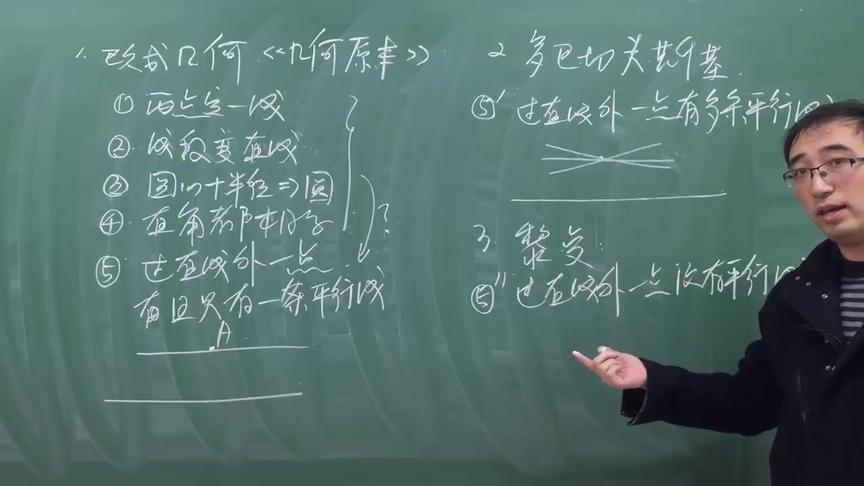 1. 欧式几何《几何原本》
① 两点定一线
② 线段变直线
③ 圆心+半径⇒圆
④ 直角都相等
?
⑤ 过直线外一点
有且只有一条平行线
A
2. 罗巴切夫斯基.
⑤' 过直线外一点有多条平行线
3. 黎曼:
⑤'' 过直线外一点没有平行线